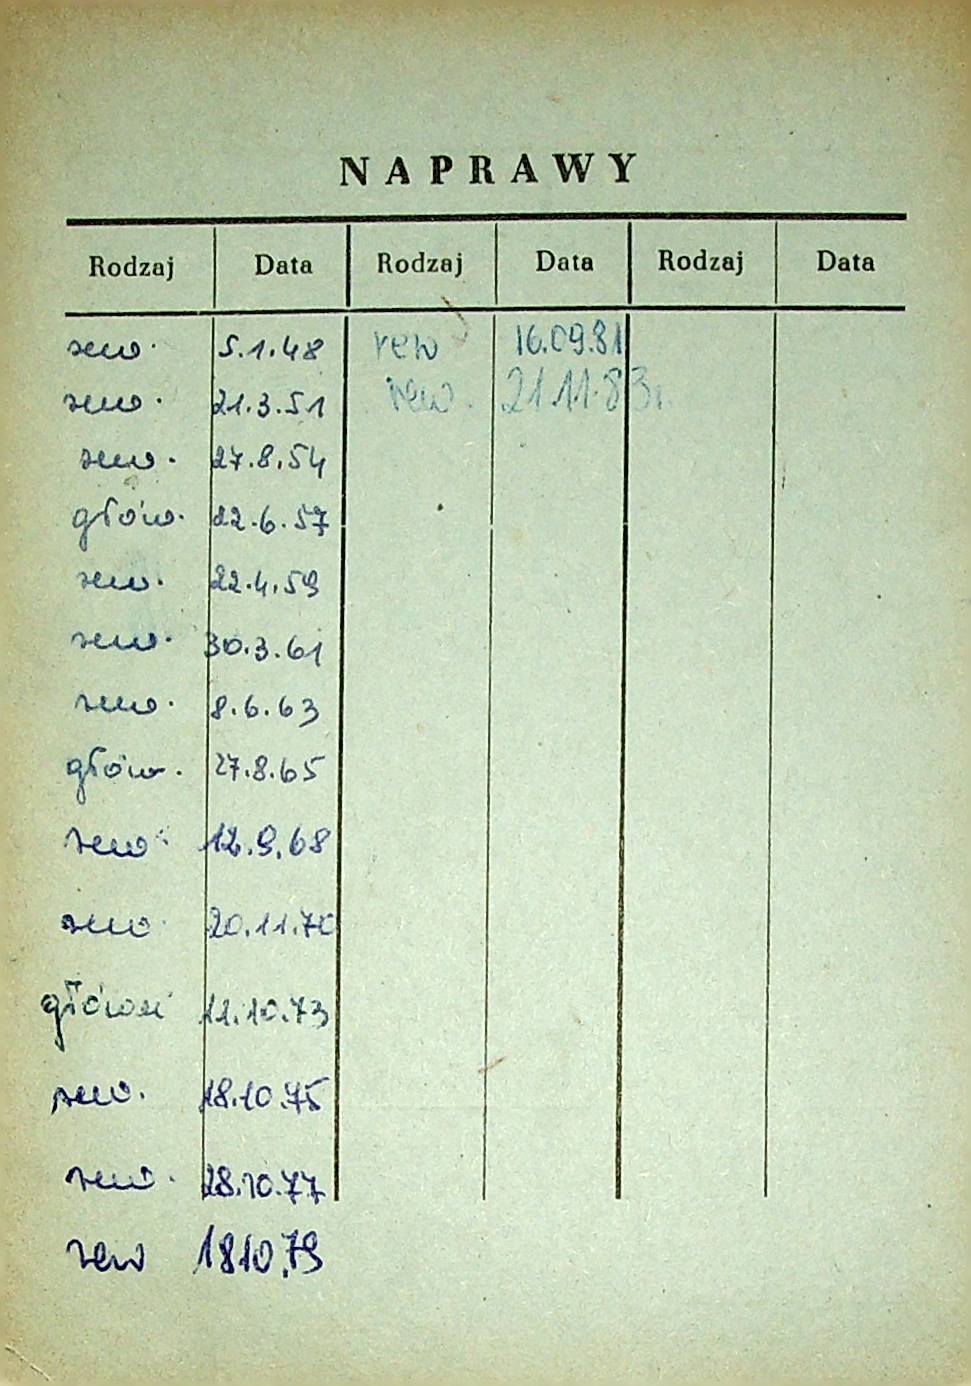 NAPRAWY
Rodzaj Data Rodzaj Data Rodzaj Data
rew. 5.1.48 rew 16.09.81
rew. 21.3.51 rew. 21.11.83r.
rew. 27.8.54
głów. 22.6.57
rew. 22.4.59
rew. 30.3.61
rew. 8.6.63
głów. 27.8.65
rew. 12.9.68
rew. 20.11.70
11.10.73
rew. 18.10.75
rew. 28.10.77
rew 18.10.79